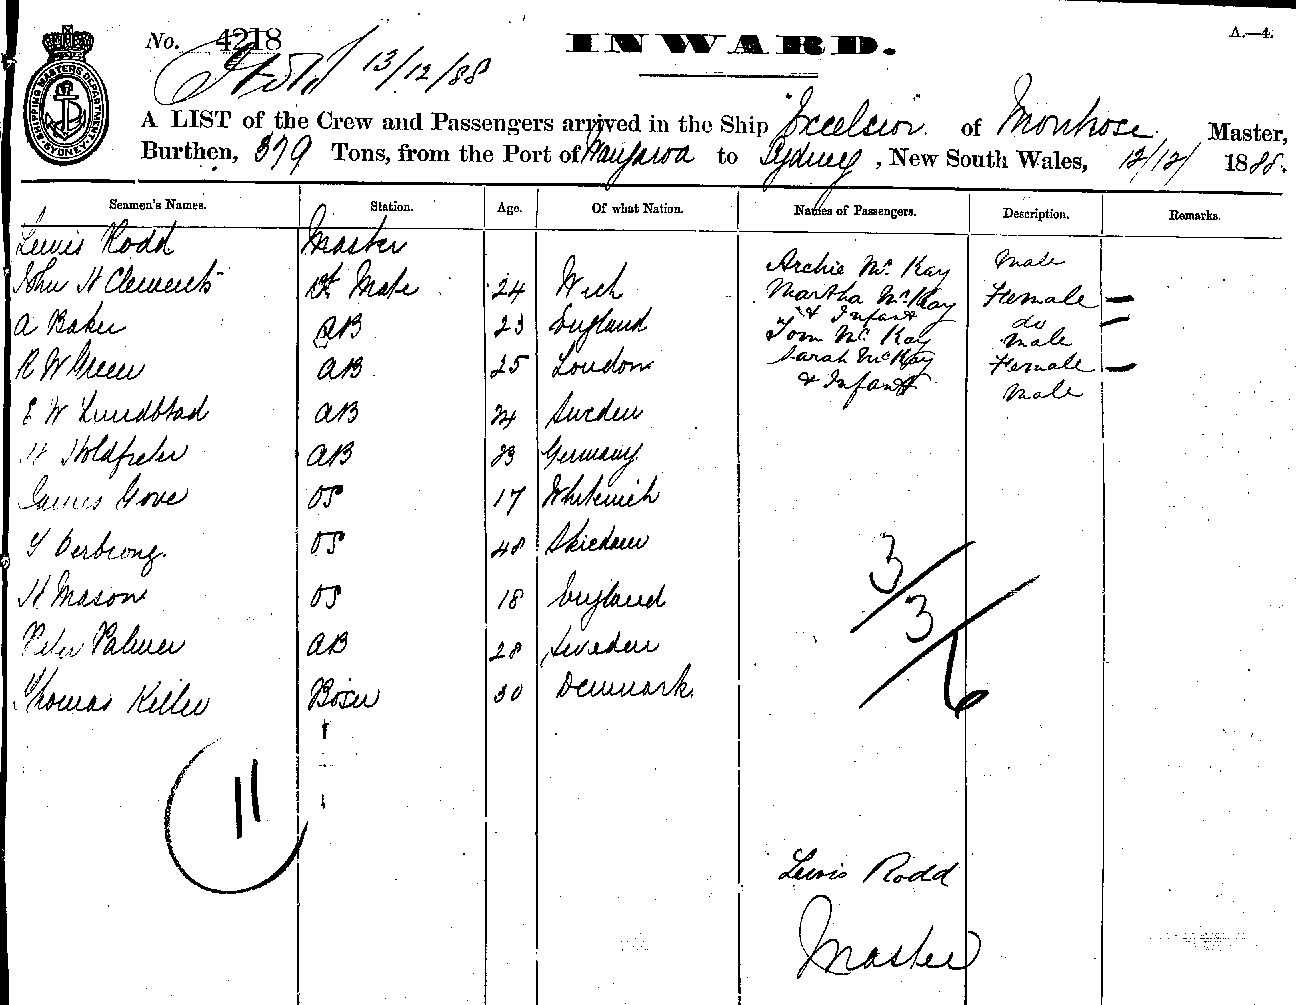 No. 4218
13/12/88
INWARD.
A.—4.
SHIPPING MASTERS DEPARTMENT SYDNEY
A LIST of the Crew and Passengers arrived in the Ship "Excelsior" of Montrose Master,
Burthen, 379 Tons, from the Port of to Sydney, New South Wales, 12/12/ 1888.
Seamen's Names. Station. Age. Of what Nation. Names of Passengers. Description. Remarks.
Lewis Rodd Master
Archie McKay Male
John H Clements 1st Mate 24
Martha McKay Female —
& Infant do —
A Baker AB 23 England
Tom McKay Male
R W Green AB 25 London
Sarah McKay Female —
& Infant Male
E W Lundblad AB 24 Sweden
H AB 23 Germany
James Gove OS 17
OS 48 Skiedam
H Mason OS 18 England
Peter Palmer AB 28 Sweden
Thomas Keller Bosn 30 Denmark
3/3/6
11
Lewis Rodd
Master